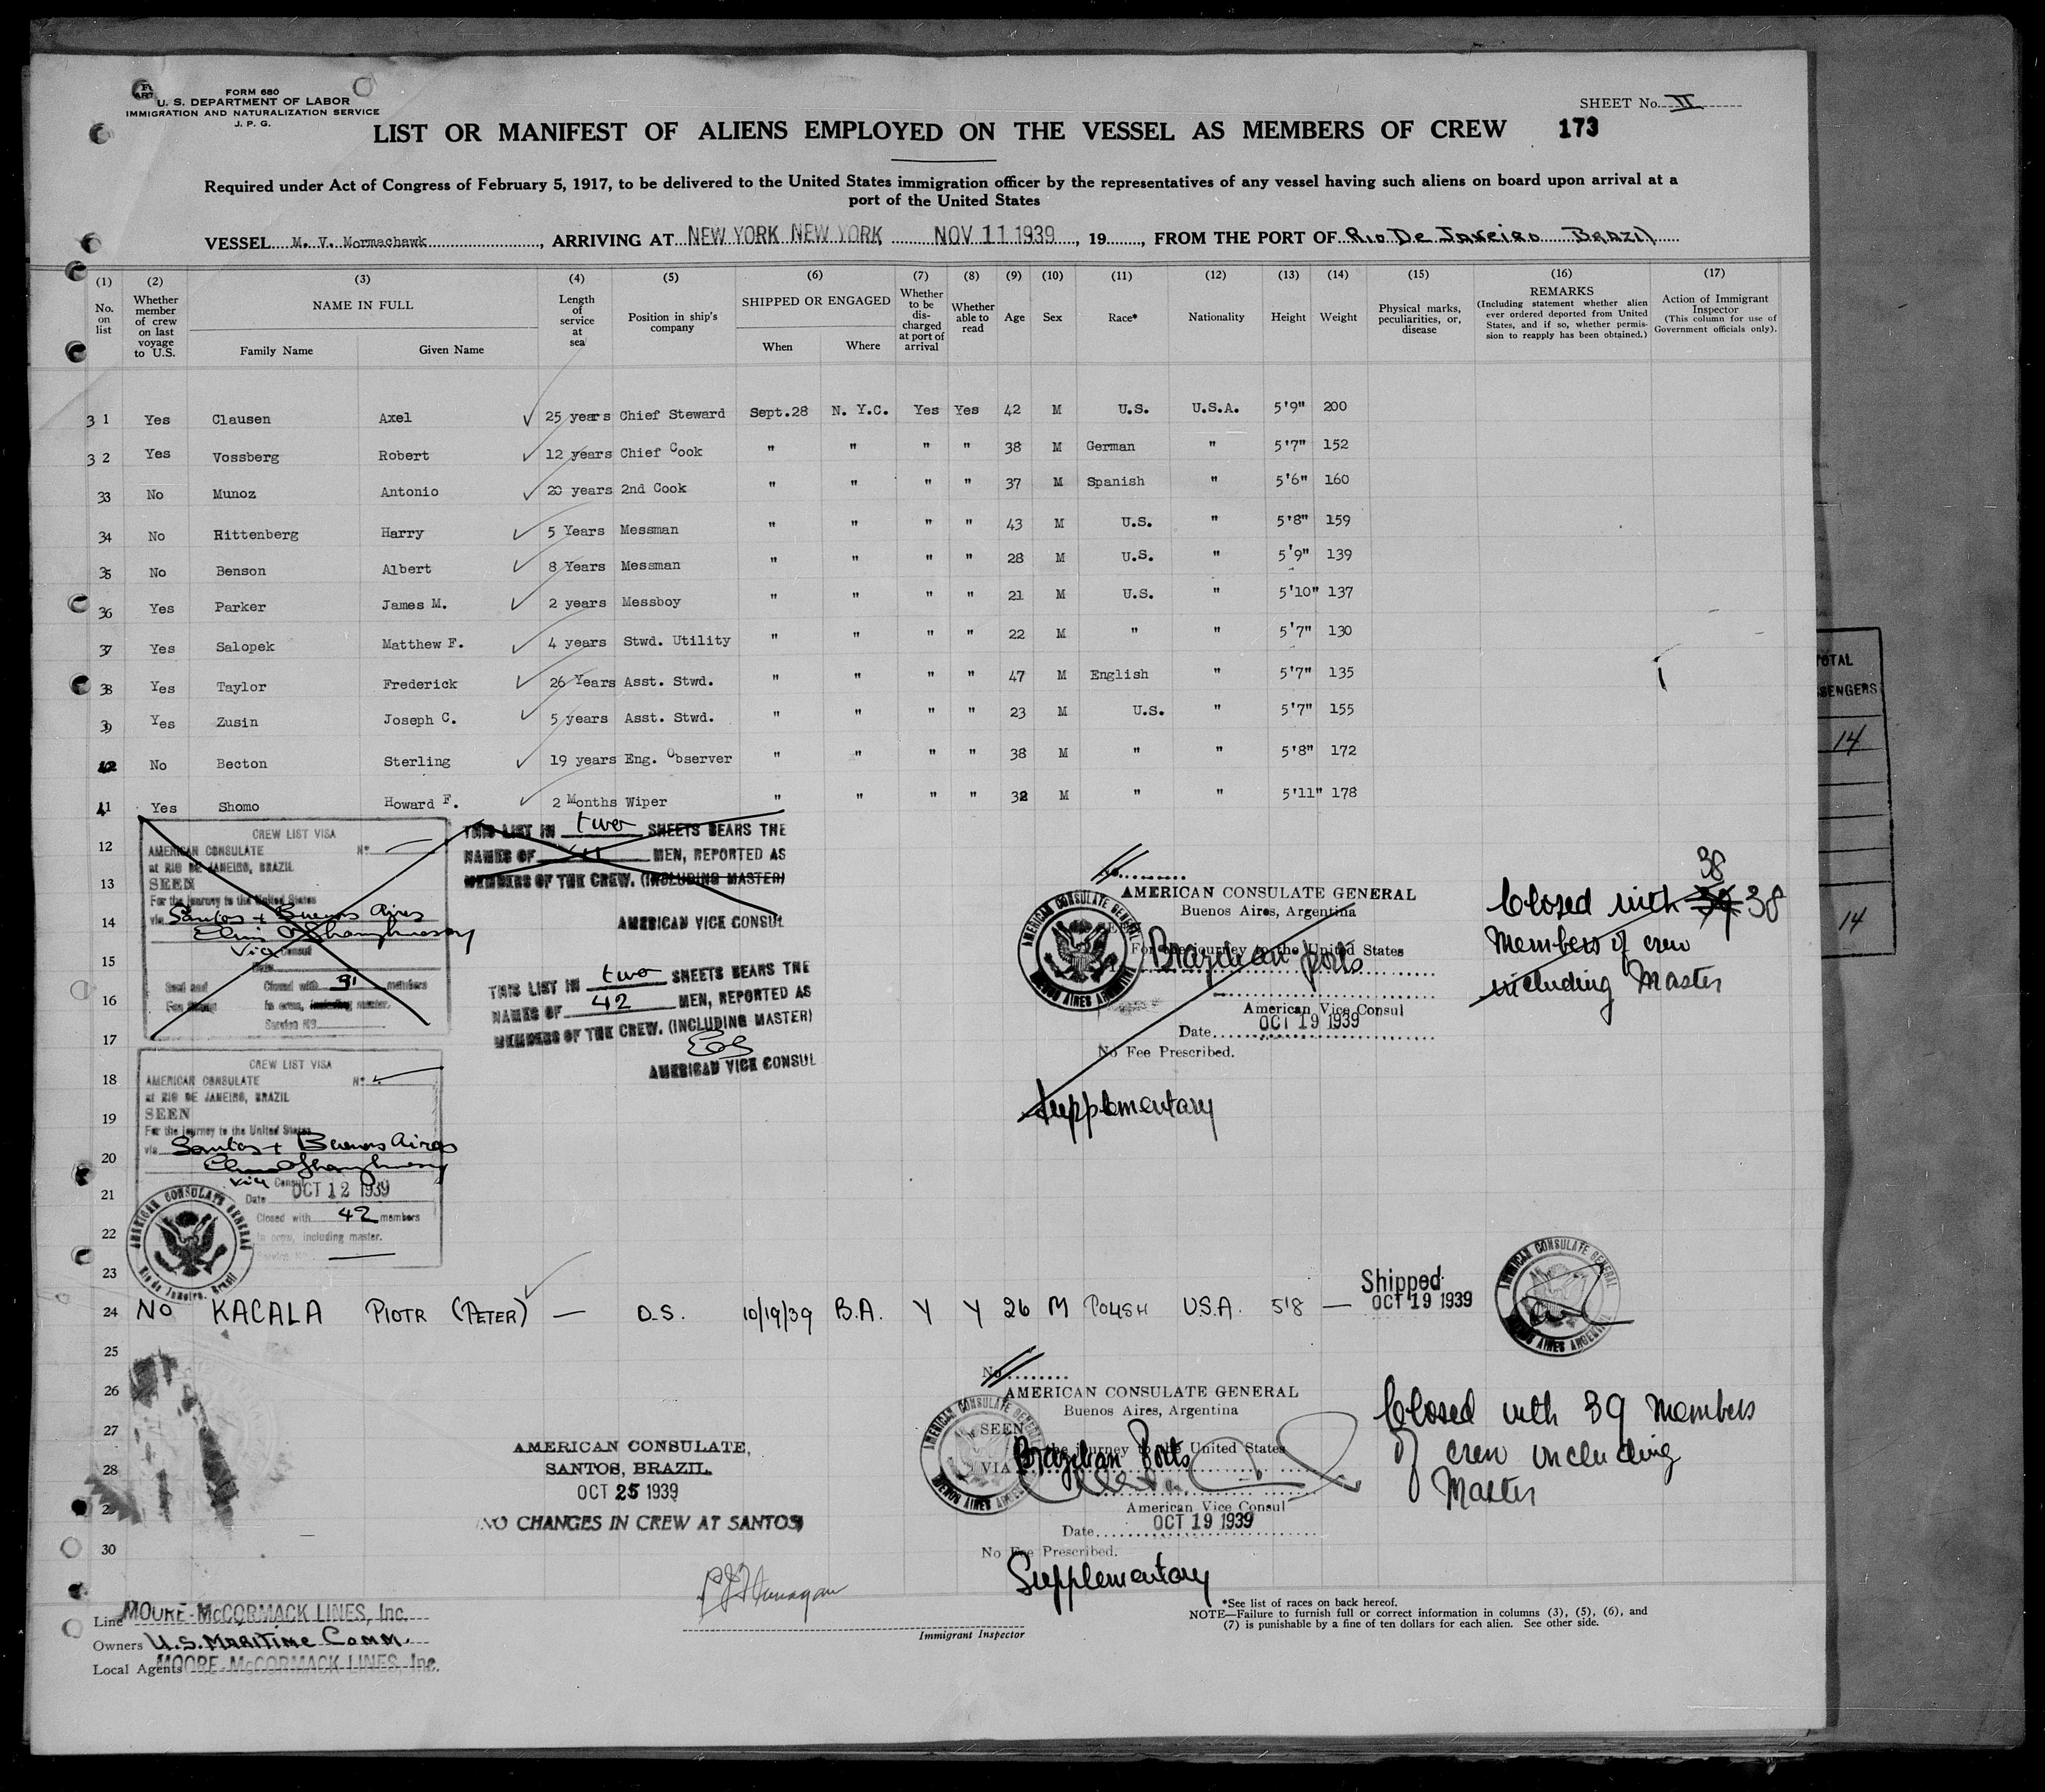 FORM 680
U. S. DEPARTMENT OF LABOR
IMMIGRATION AND NATURALIZATION SERVICE
J. P. G.
SHEET No. II
LIST OR MANIFEST OF ALIENS EMPLOYED ON THE VESSEL AS MEMBERS OF CREW 173
Required under Act of Congress of February 5, 1917, to be delivered to the United States immigration officer by the representatives of any vessel having such aliens on board upon arrival at a
port of the United States
VESSEL M. V. Mormachawk, ARRIVING AT NEW YORK NEW YORK NOV 11 1939, 19, FROM THE PORT OF Rio De Janeiro Brazil
(1) (2) (3) (4) (5) (6) (7) (8) (9) (10) (11) (12) (13) (14) (15) (16) (17)
No. on list
Whether member of crew on last voyage to U.S.
NAME IN FULL
Family Name Given Name
Length of service at sea
Position in ship's company
SHIPPED OR ENGAGED
When Where
Whether to be discharged at port of arrival
Whether able to read
Age
Sex
Race*
Nationality
Height
Weight
Physical marks, peculiarities, or, disease
REMARKS
(Including statement whether alien ever ordered deported from United States, and if so, whether permission to reapply has been obtained.)
Action of Immigrant Inspector
(This column for use of Government officials only).
31 Yes Clausen Axel 25 years Chief Steward Sept.28 N. Y.C. Yes Yes 42 M U.S. U.S.A. 5'9" 200
32 Yes Vossberg Robert 12 years Chief Cook " " " " 38 M German " 5'7" 152
33 No Munoz Antonio 20 years 2nd Cook " " " " 37 M Spanish " 5'6" 160
34 No Rittenberg Harry 5 Years Messman " " " " 43 M U.S. " 5'8" 159
35 No Benson Albert 8 Years Messman " " " " 28 M U.S. " 5'9" 139
36 Yes Parker James M. 2 years Messboy " " " " 21 M U.S. " 5'10" 137
37 Yes Salopek Matthew F. 4 years Stwd. Utility " " " " 22 M " " 5'7" 130
38 Yes Taylor Frederick 26 Years Asst. Stwd. " " " " 47 M English " 5'7" 135
39 Yes Zusin Joseph C. 5 years Asst. Stwd. " " " " 23 M U.S. " 5'7" 155
No Becton Sterling 19 years Eng. Observer " " " " 38 M " " 5'8" 172
41 Yes Shomo Howard F. 2 Months Wiper " " " " 38 M " " 5'11" 178
12
13
14
15
16
17
18
19
20
21
22
23
CREW LIST VISA
AMERICAN CONSULATE No
at RIO DE JANEIRO, BRAZIL
SEEN
For the journey to the United States
via Santos + Buenos Aires
Vice Consul
Date
Closed with members
in crew, including master.
Service No
THIS LIST IN two SHEETS BEARS THE
NAMES OF MEN, REPORTED AS
MEMBERS OF THE CREW. (INCLUDING MASTER)
AMERICAN VICE CONSUL
THIS LIST IN two SHEETS BEARS THE
NAMES OF 42 MEN, REPORTED AS
MEMBERS OF THE CREW. (INCLUDING MASTER)
AMERICAN VICE CONSUL
No
AMERICAN CONSULATE GENERAL
Buenos Aires, Argentina
For the journey to the United States
Brazilian ports
American Vice Consul
Date OCT 19 1939
No Fee Prescribed.
Supplementary
AMERICAN CONSULATE GENERAL
BUENOS AIRES ARGENTINA
38
Closed with 39 38
Members of crew
including Master
CREW LIST VISA
AMERICAN CONSULATE No
at RIO DE JANEIRO, BRAZIL
SEEN
For the journey to the United States
via Santos + Buenos Aires
Vice Consul
Date OCT 12 1939
Closed with 42 members
in crew, including master.
Service No
AMERICAN CONSULATE GENERAL
Rio de Janeiro, Brasil
24 No KACALA PIOTR (PETER) — O.S. 10/19/39 B.A. Y Y 26 M POLISH U.S.A. 5'8 — Shipped OCT 19 1939
AMERICAN CONSULATE GENERAL
BUENOS AIRES ARGENTINA
25
26
27
28
29
30
AMERICAN CONSULATE,
SANTOS, BRAZIL.
OCT 25 1939
NO CHANGES IN CREW AT SANTOS
No
AMERICAN CONSULATE GENERAL
Buenos Aires, Argentina
SEEN
the journey to the United States
VIA Brazilian Ports
American Vice Consul
Date OCT 19 1939
No Fee Prescribed.
Supplementary
AMERICAN CONSULATE GENERAL
BUENOS AIRES
Closed with 39 Members
of crew including
Master
Immigrant Inspector
*See list of races on back hereof.
NOTE—Failure to furnish full or correct information in columns (3), (5), (6), and
(7) is punishable by a fine of ten dollars for each alien. See other side.
Line MOORE-McCORMACK LINES, Inc.
Owners U.S. Maritime Comm.
Local Agents MOORE-McCORMACK LINES, Inc.
TOTAL
14
14